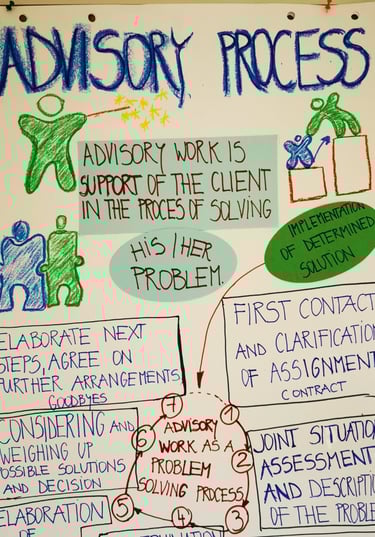 ADVISORY PROCESS
ADVISORY WORK IS
SUPPORT OF THE CLIENT
IN THE PROCES OF SOLVING
HIS/HER
PROBLEM.
IMPLEMENTATION
OF DETERMINED
SOLUTION
FIRST CONTACT
AND CLARIFICATION
OF ASSIGNMENT
CONTRACT
ELABORATE NEXT
STEPS, AGREE ON
FURTHER ARRANGEMENTS
GOODBYES
CONSIDERING AND
WEIGHING UP
POSSIBLE SOLUTIONS
AND DECISION
7
1
6
2
5
3
4
ADVISORY
WORK AS A
PROBLEM
SOLVING PROCESS
JOINT SITUATION
ASSESSMENT
AND DESCRIPTION
OF THE PROBLEM
ELABORATION
OF